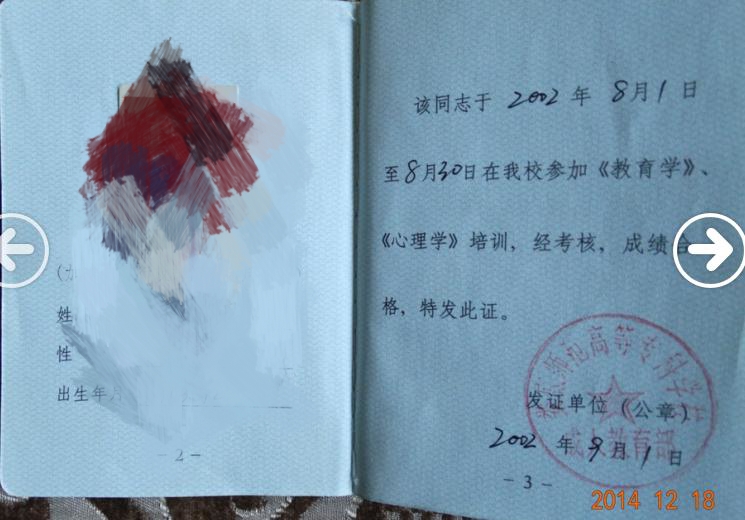 姓
性
出生年月
- 2 -
该同志于 2002 年 8月1日
至8月30日在我校参加《教育学》、
《心理学》培训，经考核，成绩合
格，特发此证。
师范高等专科学校
成人教育部
发证单位（公章）
2002 年 9月1日
- 3 -
2014 12 18